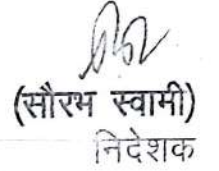 (सौरभ स्वामी)
निदेशक